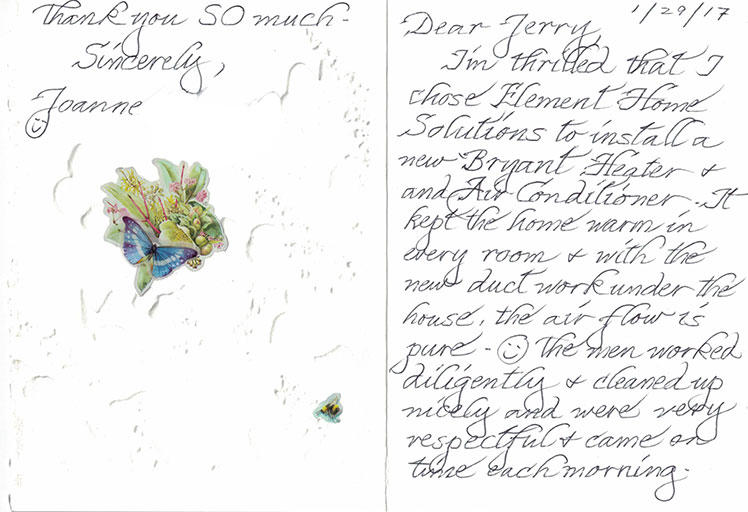 1/29/17
Dear Jerry,
I'm thrilled that I
chose Element Home
Solutions to install a
new Bryant Heater &
and Air Conditioner. It
kept the home warm in
every room & with the
new duct work under the
house, the air flow is
pure - ☺ The men worked
diligently & cleaned up
nicely and were very
respectful & came on
time each morning.
Thank you SO much -
Sincerely,
Joanne
☺